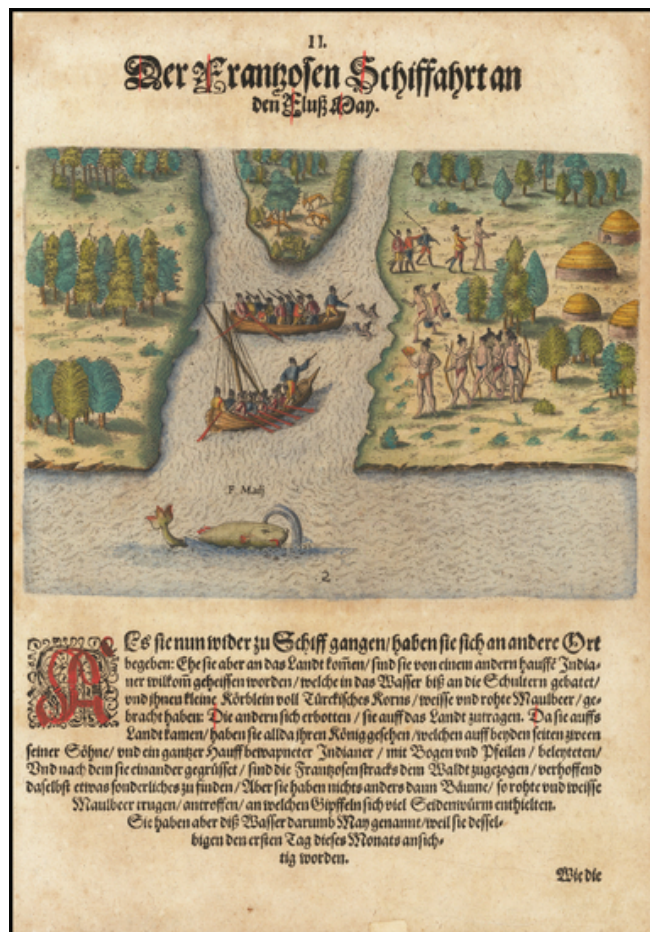 II.
Der Frantzosen Schiffahrt an
den Fluß May.
F. Maij
2
Als sie nun wider zu Schiff gangen/ haben sie sich an andere Ort
begeben: Ehe sie aber an das Landt kom̃en/ sind sie von einem andern hauffẽ India-
ner wilkom̃ geheissen worden/ welche in das Wasser biß an die Schultern gebatet/
vnd jhnen kleine Körblein voll Türckisches Korns/ weisse vnd rohte Maulbeer/ ge-
bracht haben: Die andern sich erbotten/ sie auff das Landt zutragen. Da sie auffs
Landt kamen/ haben sie allda jhren König gesehen/ welchen auff beyden seiten zween
seiner Söhne/ vnd ein gantzer Hauff bewapneter Indianer/ mit Bogen vnd Pfeilen/ beleyteten/
Vnd nach dem sie einander gegrüsset/ sind die Frantzosen stracks dem Waldt zugezogen/ verhoffend
daselbst etwas sonderliches zu finden/ Aber sie haben nichts anders dann Bäume/ so rohte vnd weisse
Maulbeer trugen/ antroffen/ an welchen Gipffeln sich viel Seidenwürm enthielten.
Sie haben aber diß Wasser darumb May genannt/ weil sie dessel-
bigen den ersten Tag dieses Monats ansich-
tig worden.
Wie die